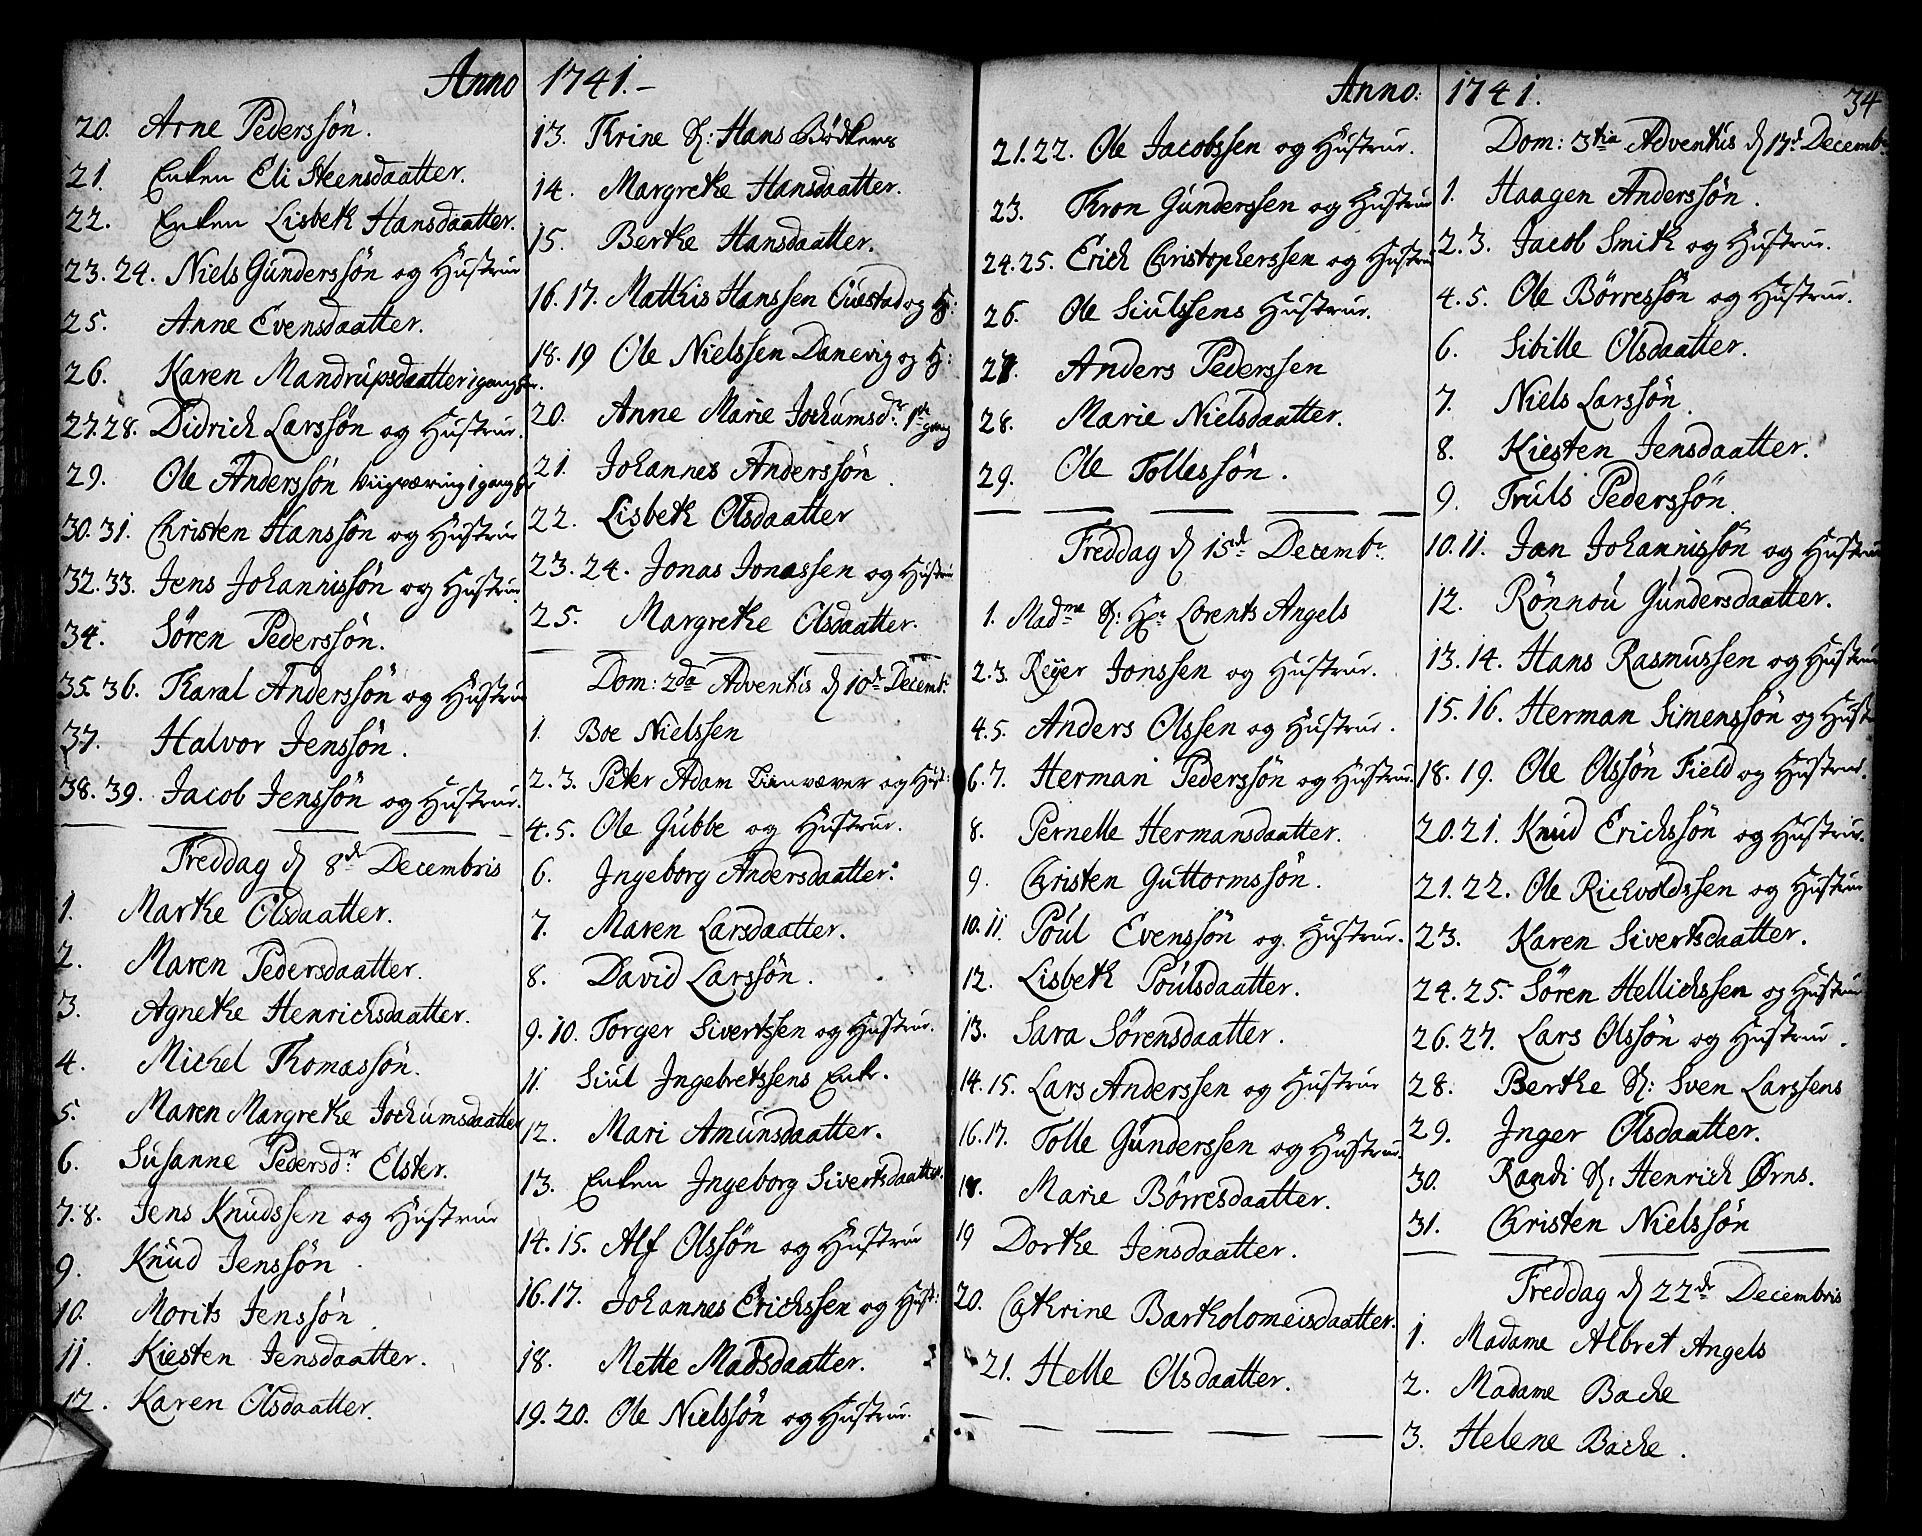 Anno 1741.
20. Arne Pederssön.
21. Enken Eli Steensdaatter.
22. Enken Lisbeth Hansdaatter.
23. 24. Niels Gunderssön og Hustrue
25. Anne Evensdaatter.
26. Karen Mandrupsdaatter 1 gang
27. 28. Didrich Larssön og Hustrue.
29. Ole Anderssön 1 gang
30. 31. Christen Hanssön og Hustrue
32. 33. Jens Johannissön og Hustrue.
34. Sören Pederssön.
35. 36. Tharal Anderssön og Hustrue
37. Halvor Jenssön.
38. 39. Jacob Jenssön og Hustrue.
Freddag d 8de Decembris
1. Marthe Olsdaatter.
2. Maren Pedersdaatter.
3. Agnethe Henrichsdaatter.
4. Michel Thomassön.
5. Maren Margrethe Jochumsdaatter
6. Susanne Pedersdr Elster.
7. 8. Jens Knudssen og Hustrue
9. Knud Jenssön
10. Morits Jenssön.
11. Kiesten Jensdaatter.
12. Karen Olsdaatter.
13. Thrine S: Hans Bödkers
14. Margrethe Hansdaatter.
15. Berthe Hansdaatter.
16. 17. Matthis Hanssen Questad og H:
18. 19 Ole Nielssen Danevig og H:
20. Anne Marie Jochumsdr. 1ste gang
21. Johannes Anderssön.
22. Lisbeth Olsdaatter
23. 24. Jonas Jonassen og Hustrue
25. Margrethe Olsdaatter.
Dom: 2da Adventus d 10de Decemb:
1. Boe Nielssen
2. 3. Peter Adam Linvæver og Hust:
4. 5. Ole Gubbe og Hustrue.
6. Ingeborg Andersdaatter.
7. Maren Larsdaatter.
8. David Larssön.
9. 10. Torger Sivertssen og Hustrue.
11. Siul Ingebretssens Enke.
12. Mari Amundsdaatter.
13. Enken Ingeborg Sivertsdaatter.
14. 15. Alf Olssön og Hustrue
16. 17. Johannes Erichssen og Hust:
18. Mette Madsdaatter.
19. 20. Ole Nielssön og Hustrue.
Anno: 1741. 34
21. 22. Ole Jacobssen og Hustrue.
23. Thron Gunderssen og Hustrue
24. 25. Erich Christopherssen og Hustrue
26. Ole Siulssens Hustrue.
27. Anders Pederssen
28. Marie Nielsdaatter.
29. Ole Tollessön.
Freddag d 15de Decembr.
1. Madme S: Hr Lorents Angels
2. 3. Reyer Jonssen og Hustrue.
4. 5. Anders Olssen og Hustrue.
6. 7. Herman Pederssön og Hustrue.
8. Pernelle Hermansdaatter.
9. Christen Guttormssön.
10. 11. Poul Evenssön og Hustrue.
12. Lisbeth Poulsdaatter.
13. Sara Sörensdaatter.
14. 15. Lars Anderssen og Hustrue
16. 17. Tolle Gunderssen og Hustrue.
18. Marie Börresdaatter.
19 Dorthe Jensdaatter.
20. Cathrine Bartholomeisdaatter.
21. Helle Olsdaatter.
Dom: 3tia Adventus d 17de Decembr
1. Haagen Anderssön.
2. 3. Jacob Smith og Hustrue.
4. 5. Ole Börressön og Hustrue.
6. Sibille Olsdaatter.
7. Niels Larssön.
8. Kiesten Jensdaatter.
9. Truls Pederssön.
10. 11. Jan Johannissön og Hustrue
12. Rönnou Gundersdaatter.
13. 14. Hans Rasmussen og Hustrue
15. 16. Herman Simenssön og Hustrue
18. 19. Ole Olssön Field og Hustrue.
20. 21. Knud Erichssön og Hustrue.
21. 22. Ole Richvoldssen og Hustrue
23. Karen Sivertsdaatter.
24. 25. Sören Hellichssen og Hustrue
26. 27. Lars Olssön og Hustrue.
28. Berthe S: Sven Larssens
29. Inger Olsdaatter.
30. Randi S: Henrich Ørns.
31. Christen Nielssön
Freddag d 22de Decembris
1. Madame Albret Angels
2. Madame Bache
3. Helene Bache.